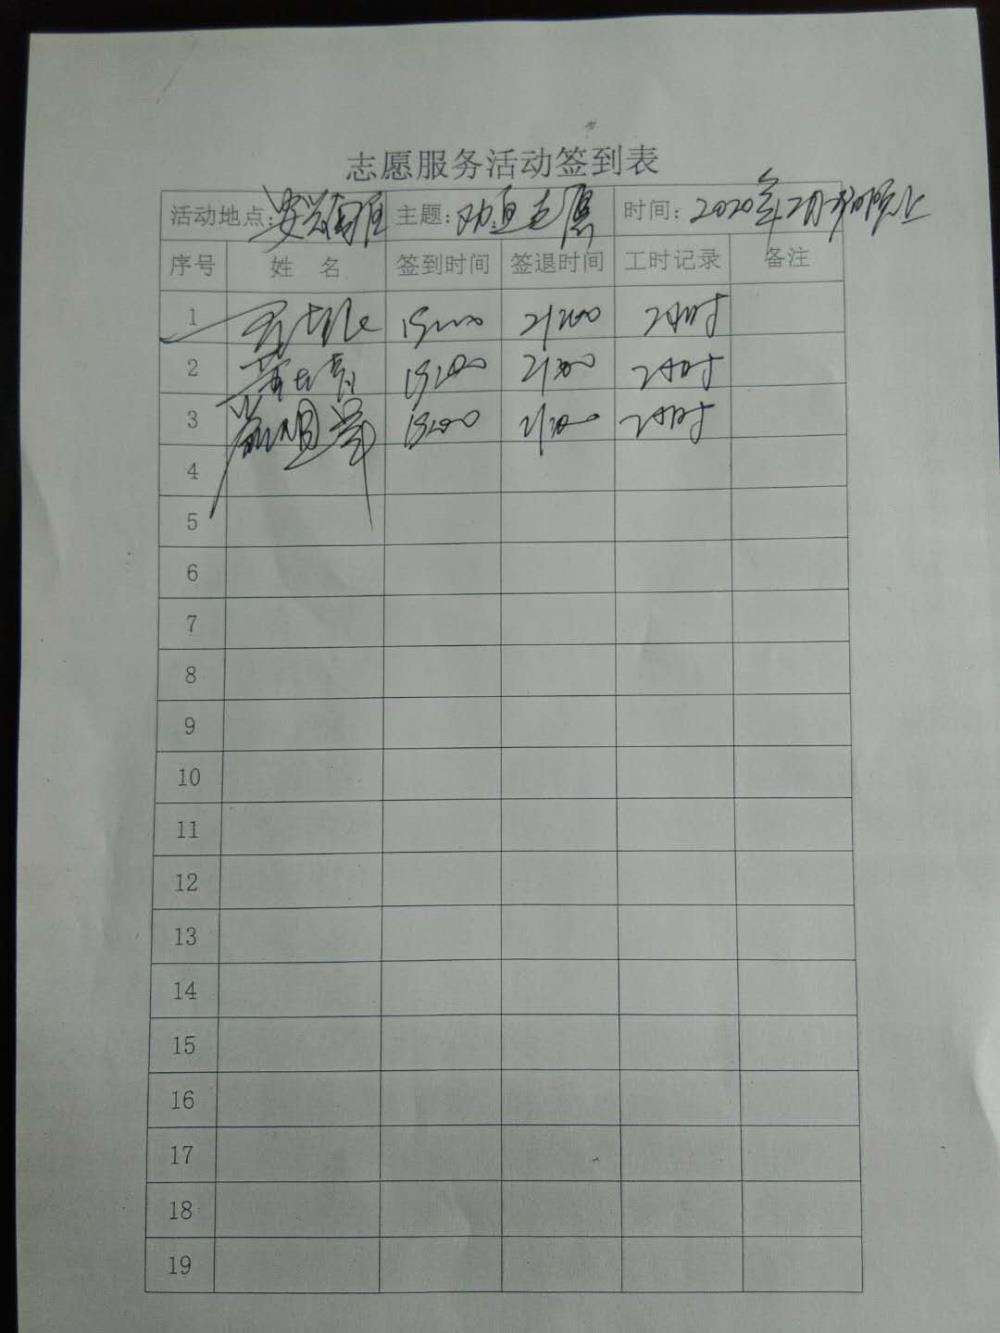 志愿服务活动签到表
活动地点: 安兴南里 主题: 志愿 时间: 2020年2月
序号 姓 名 签到时间 签退时间 工时记录 备注
1 19:00 21:00 2小时
2 19:00 21:00 2小时
3 19:00 21:00 2小时
4
5
6
7
8
9
10
11
12
13
14
15
16
17
18
19